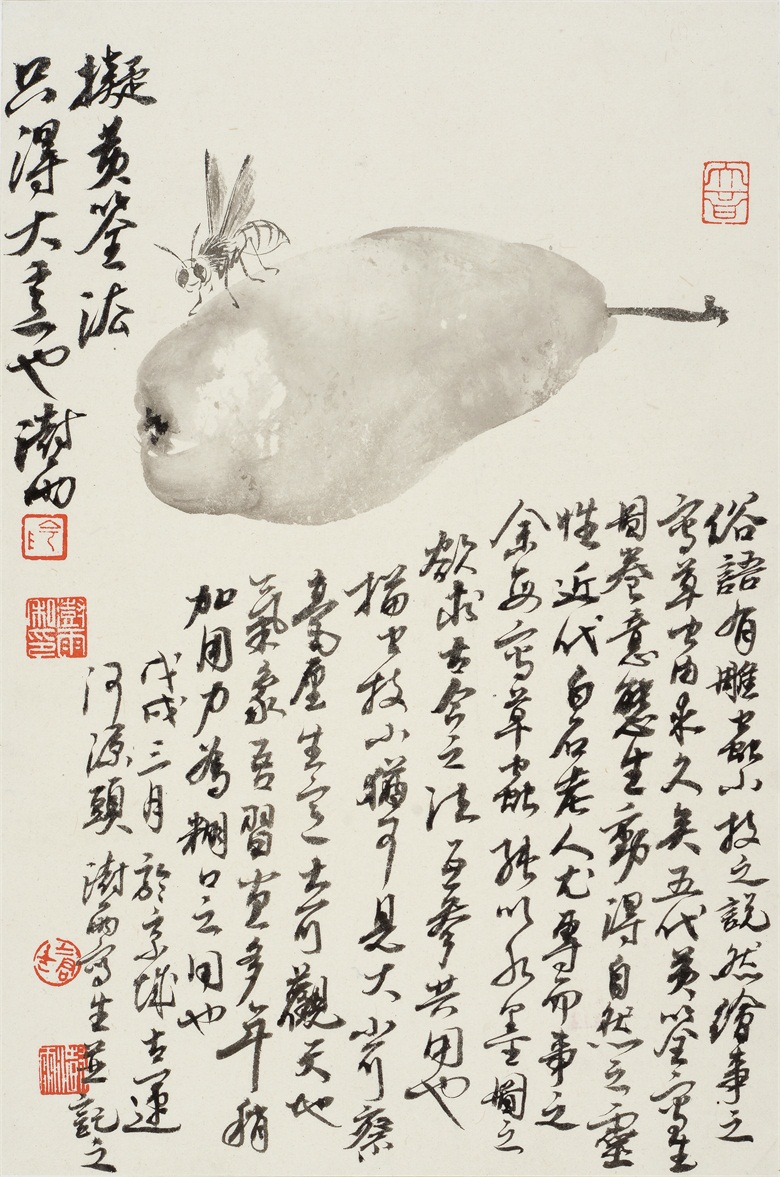 擬黄筌法
只得大意也澍雨
俗語有雕蟲小技之説然繪事之
寫草虫由来久矣五代黄筌寫生
圖卷意態生動得自然之靈
性近代白石老人尤專而事之
余每寫草蟲以水墨圖之
欲求古今之法互參共用也
描虫技小猶可見大小可察
毫厘生意大可觀天地
氣象吾習畫多年稍
加用力為糊口之用也
戊戌三月於京城古運
河源頭澍雨寫生並記之